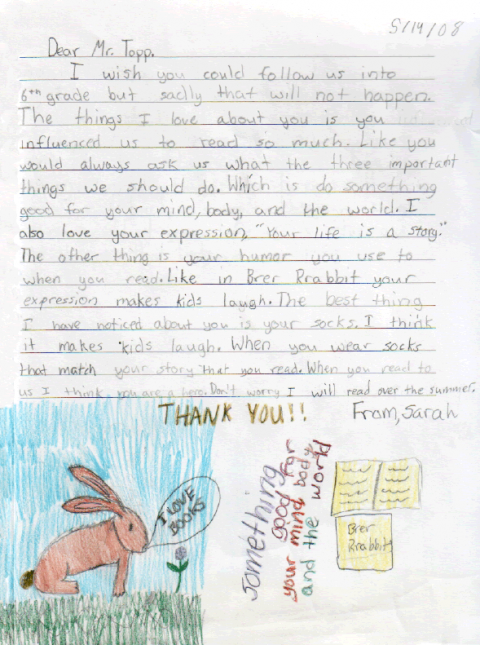 5/19/08
Dear Mr. Topp,
I wish you could follow us into
6th grade but sadly that will not happen.
The things I love about you is you
influenced us to read so much. Like you
would always ask us what the three important
things we should do. Which is do something
good for your mind, body, and the world. I
also love your expression, "Your life is a story."
The other thing is your humor you use to
when you read. Like in Brer Rrabbit your
expression makes kids laugh. The best thing
I have noticed about you is your socks. I think
it makes kids laugh. When you wear socks
that match your story that you read. When you read to
us I think you are a hero. Don't worry I will read over the summer.
THANK YOU!!
From, Sarah
I LOVE
BOOKS
something
good for
your mind body
and the world
Brer
Rrabbit